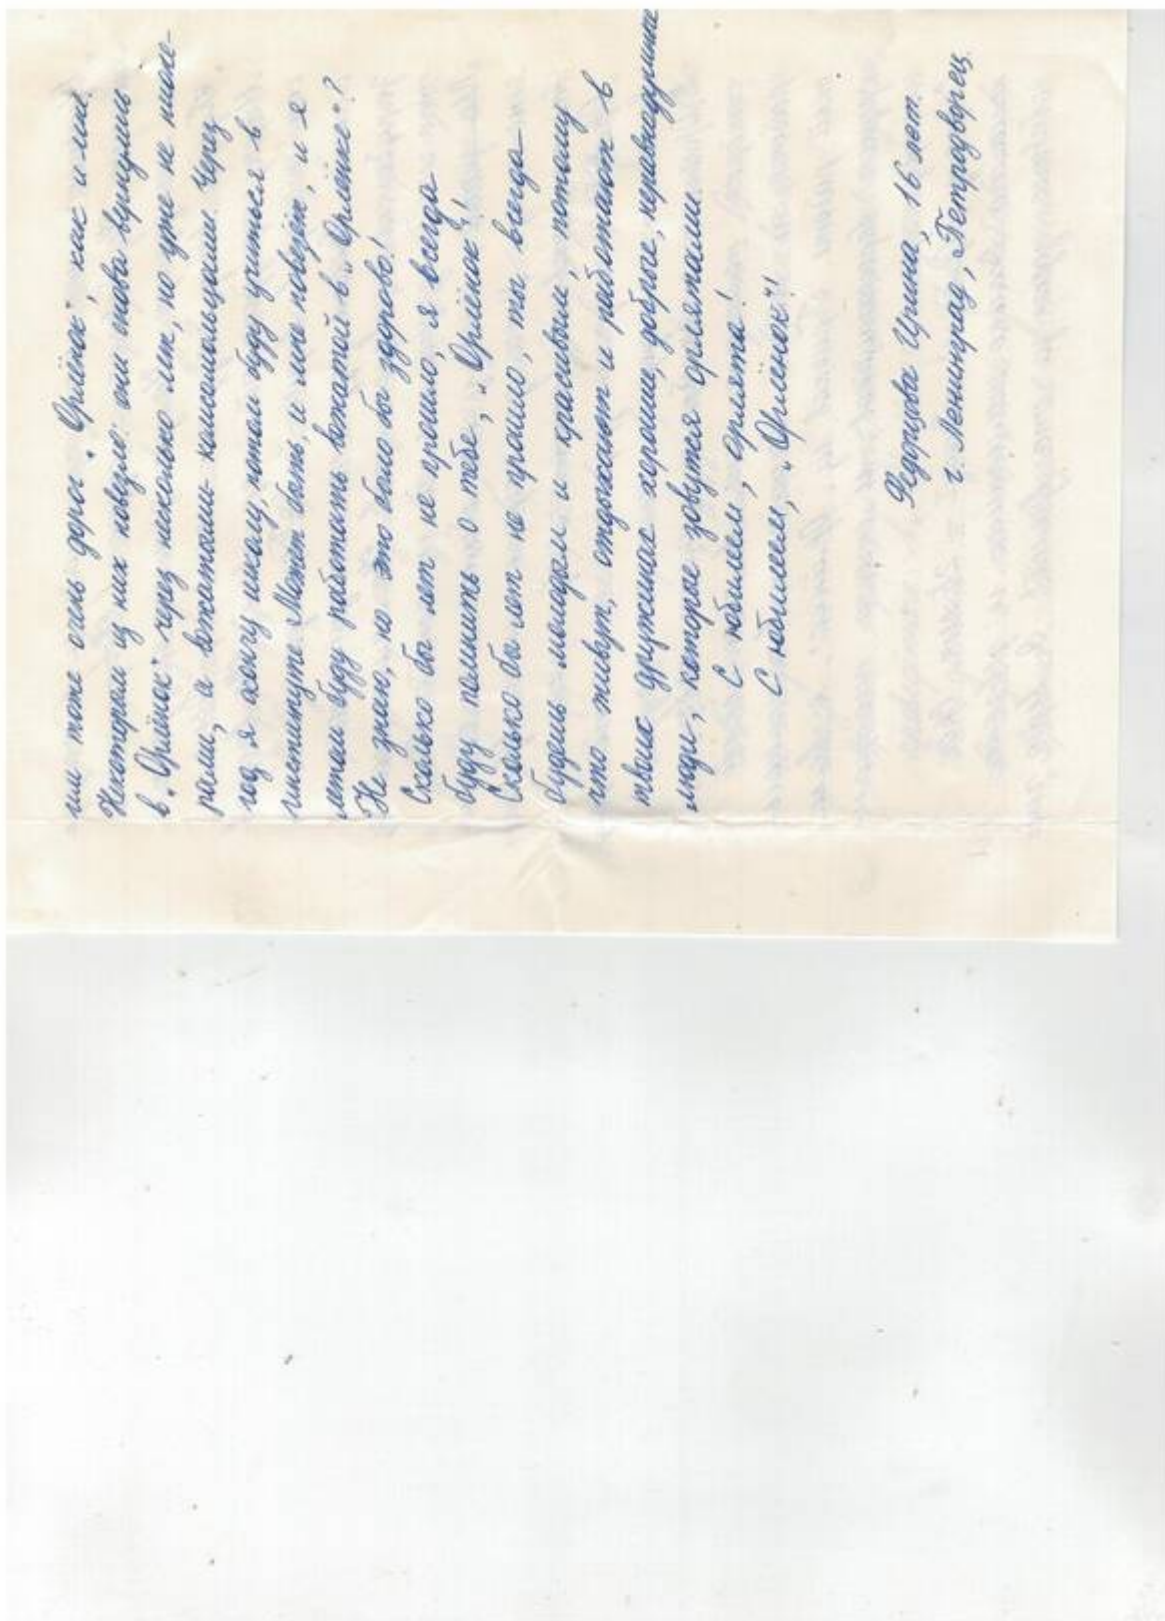 им тоже очень дорог „Орлёнок", как и мне.
Некоторым из них повезло: они снова вернулись
в „Орлёнок" через несколько лет, но уже не пионе-
рами, а вожатыми-комсомольцами. Через
год я окончу школу, потом буду учиться в
институте. Может быть, и мне повезёт, и я
летом буду работать вожатой в „Орлёнке"?
Не знаю, но это было бы здорово!
Сколько бы лет не прошло, я всегда
буду помнить о тебе, „Орлёнок"!
Сколько бы лет не прошло, ты всегда
будешь молодым и красивым, потому
что живут, отдыхают и работают в
твоих дружинах хорошие, добрые, неравнодушные
люди, которые зовутся орлятами.
С юбилеем, орлята!
С юбилеем, „Орлёнок"!
Ирина, 16 лет.
г. Ленинград, Петродворец.